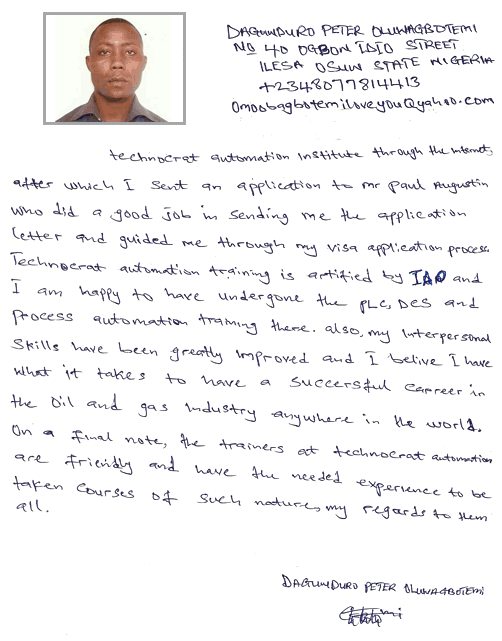 DAGUNDURO PETER OLUWAGBOTEMI
NO 40 OGBON IDIO STREET
ILESA OSUN STATE NIGERIA
+2348077814413
omoobagbotemiloveyou@yahoo.com
technocrat automation institute through the internet,
after which I sent an application to mr Paul Augustin
who did a good job in sending me the application
letter and guided me through my visa application process.
Technocrat automation training is certified by IAO and
I am happy to have undergone the PLC, DCS and
Process automation training there. also, my Interpersonal
Skills have been greatly improved and I belive I have
what it takes to have a successful carreer in
the Oil and gas Industry anywhere in the world.
On a final note, the trainers at technocrat automation
are friendly and have the needed experience to be
taken courses of such nature, my regards to them
all.
DAGUNDURO PETER OLUWAGBOTEMI